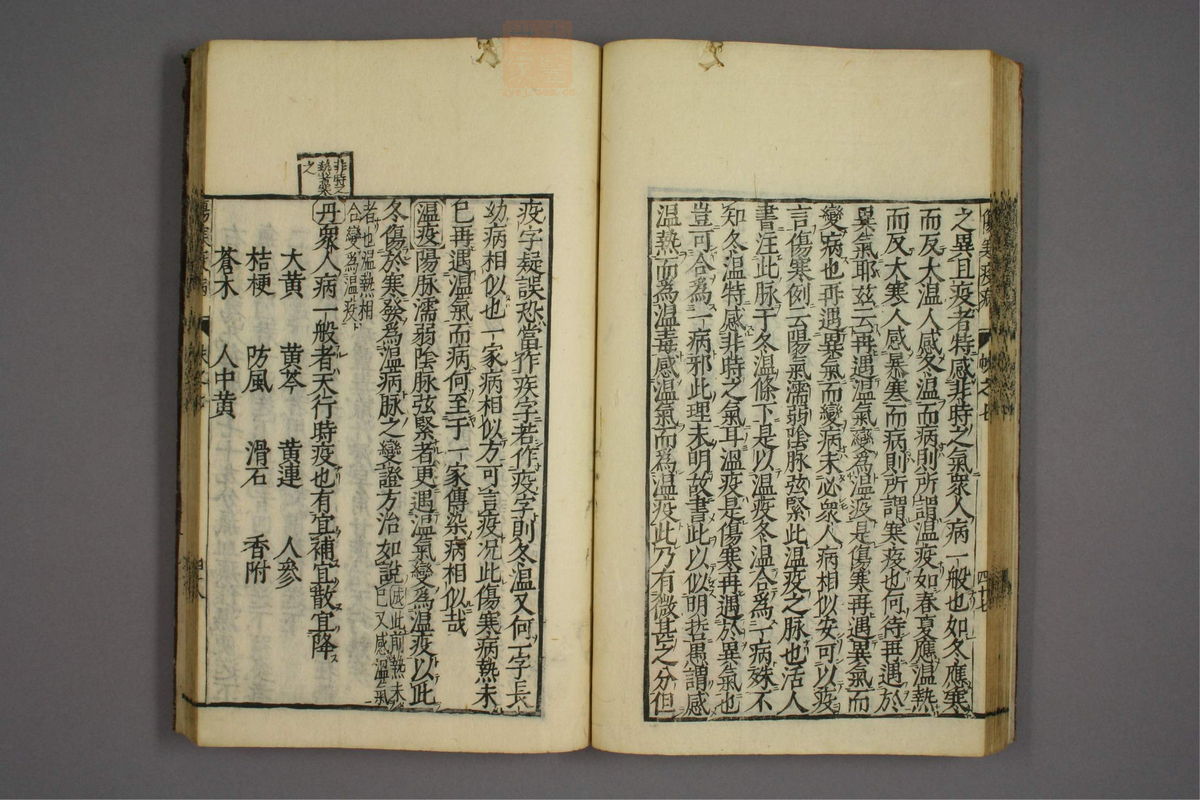 之異且疫者特感非時之氣衆人病一般也如冬應寒
而反大温人感冬温而病則所謂温疫如春夏應温熱
而反大寒人感暴寒而病則所謂寒疫也何待再遇於
異氣耶茲云再遇温氣變爲温疫是傷寒再遇異氣而
變病也再遇異氣而變病未必衆人病相似安可以疫
言傷寒例云陽氣濡弱陰脉弦緊此温疫之脉也活人
書注此脉于冬温條下是以温疫冬温合爲一病殊不
知冬温特感非時之氣耳温疫是傷寒再遇於異氣也
豈可合爲一病邪此理未明故書此以似明哲愚謂感
温熱而爲温毒感温氣而爲温疫此乃有微甚之分但
疫字疑誤恐當作疾字若作疫字則冬温又何一字長
幼病相似也一家病相似方可言疫况此傷寒病熱未
已再遇温氣而病何至于一家傳染病相似哉
温疫陽脉濡弱陰脉弦緊者更遇温氣變爲温疫以此
冬傷於寒發爲温病脉之變證方治如說
此前熱未
已又感温氣
者也温熱相
合變爲温疫
非時之
之
丹衆人病一般者天行時疫也有宜補宜散宜降
大黄 黄芩 黄連 人參
桔梗 防風 滑石 香附
蒼术 人中黄